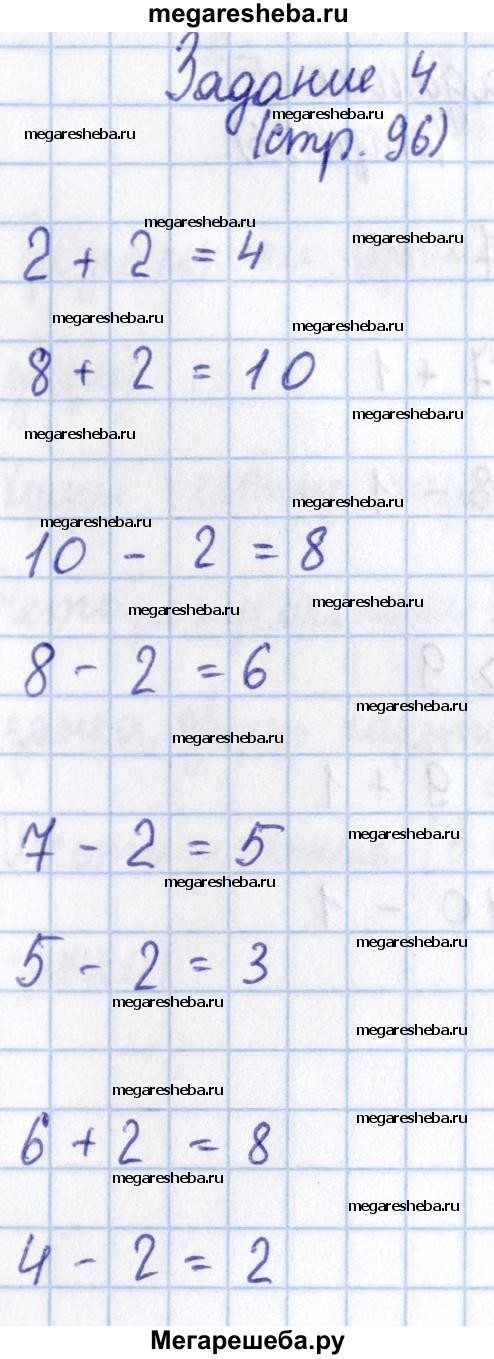 megaresheba.ru
Задание 4
megaresheba.ru
megaresheba.ru
(стр. 96)
megaresheba.ru
megaresheba.ru
2 + 2 = 4
megaresheba.ru
megaresheba.ru
8 + 2 = 10
megaresheba.ru
megaresheba.ru
megaresheba.ru
megaresheba.ru
10 - 2 = 8
megaresheba.ru
megaresheba.ru
8 - 2 = 6
megaresheba.ru
megaresheba.ru
megaresheba.ru
7 - 2 = 5
megaresheba.ru
megaresheba.ru
5 - 2 = 3
megaresheba.ru
megaresheba.ru
megaresheba.ru
megaresheba.ru
6 + 2 = 8
megaresheba.ru
megaresheba.ru
4 - 2 = 2
Мегарешеба.ру